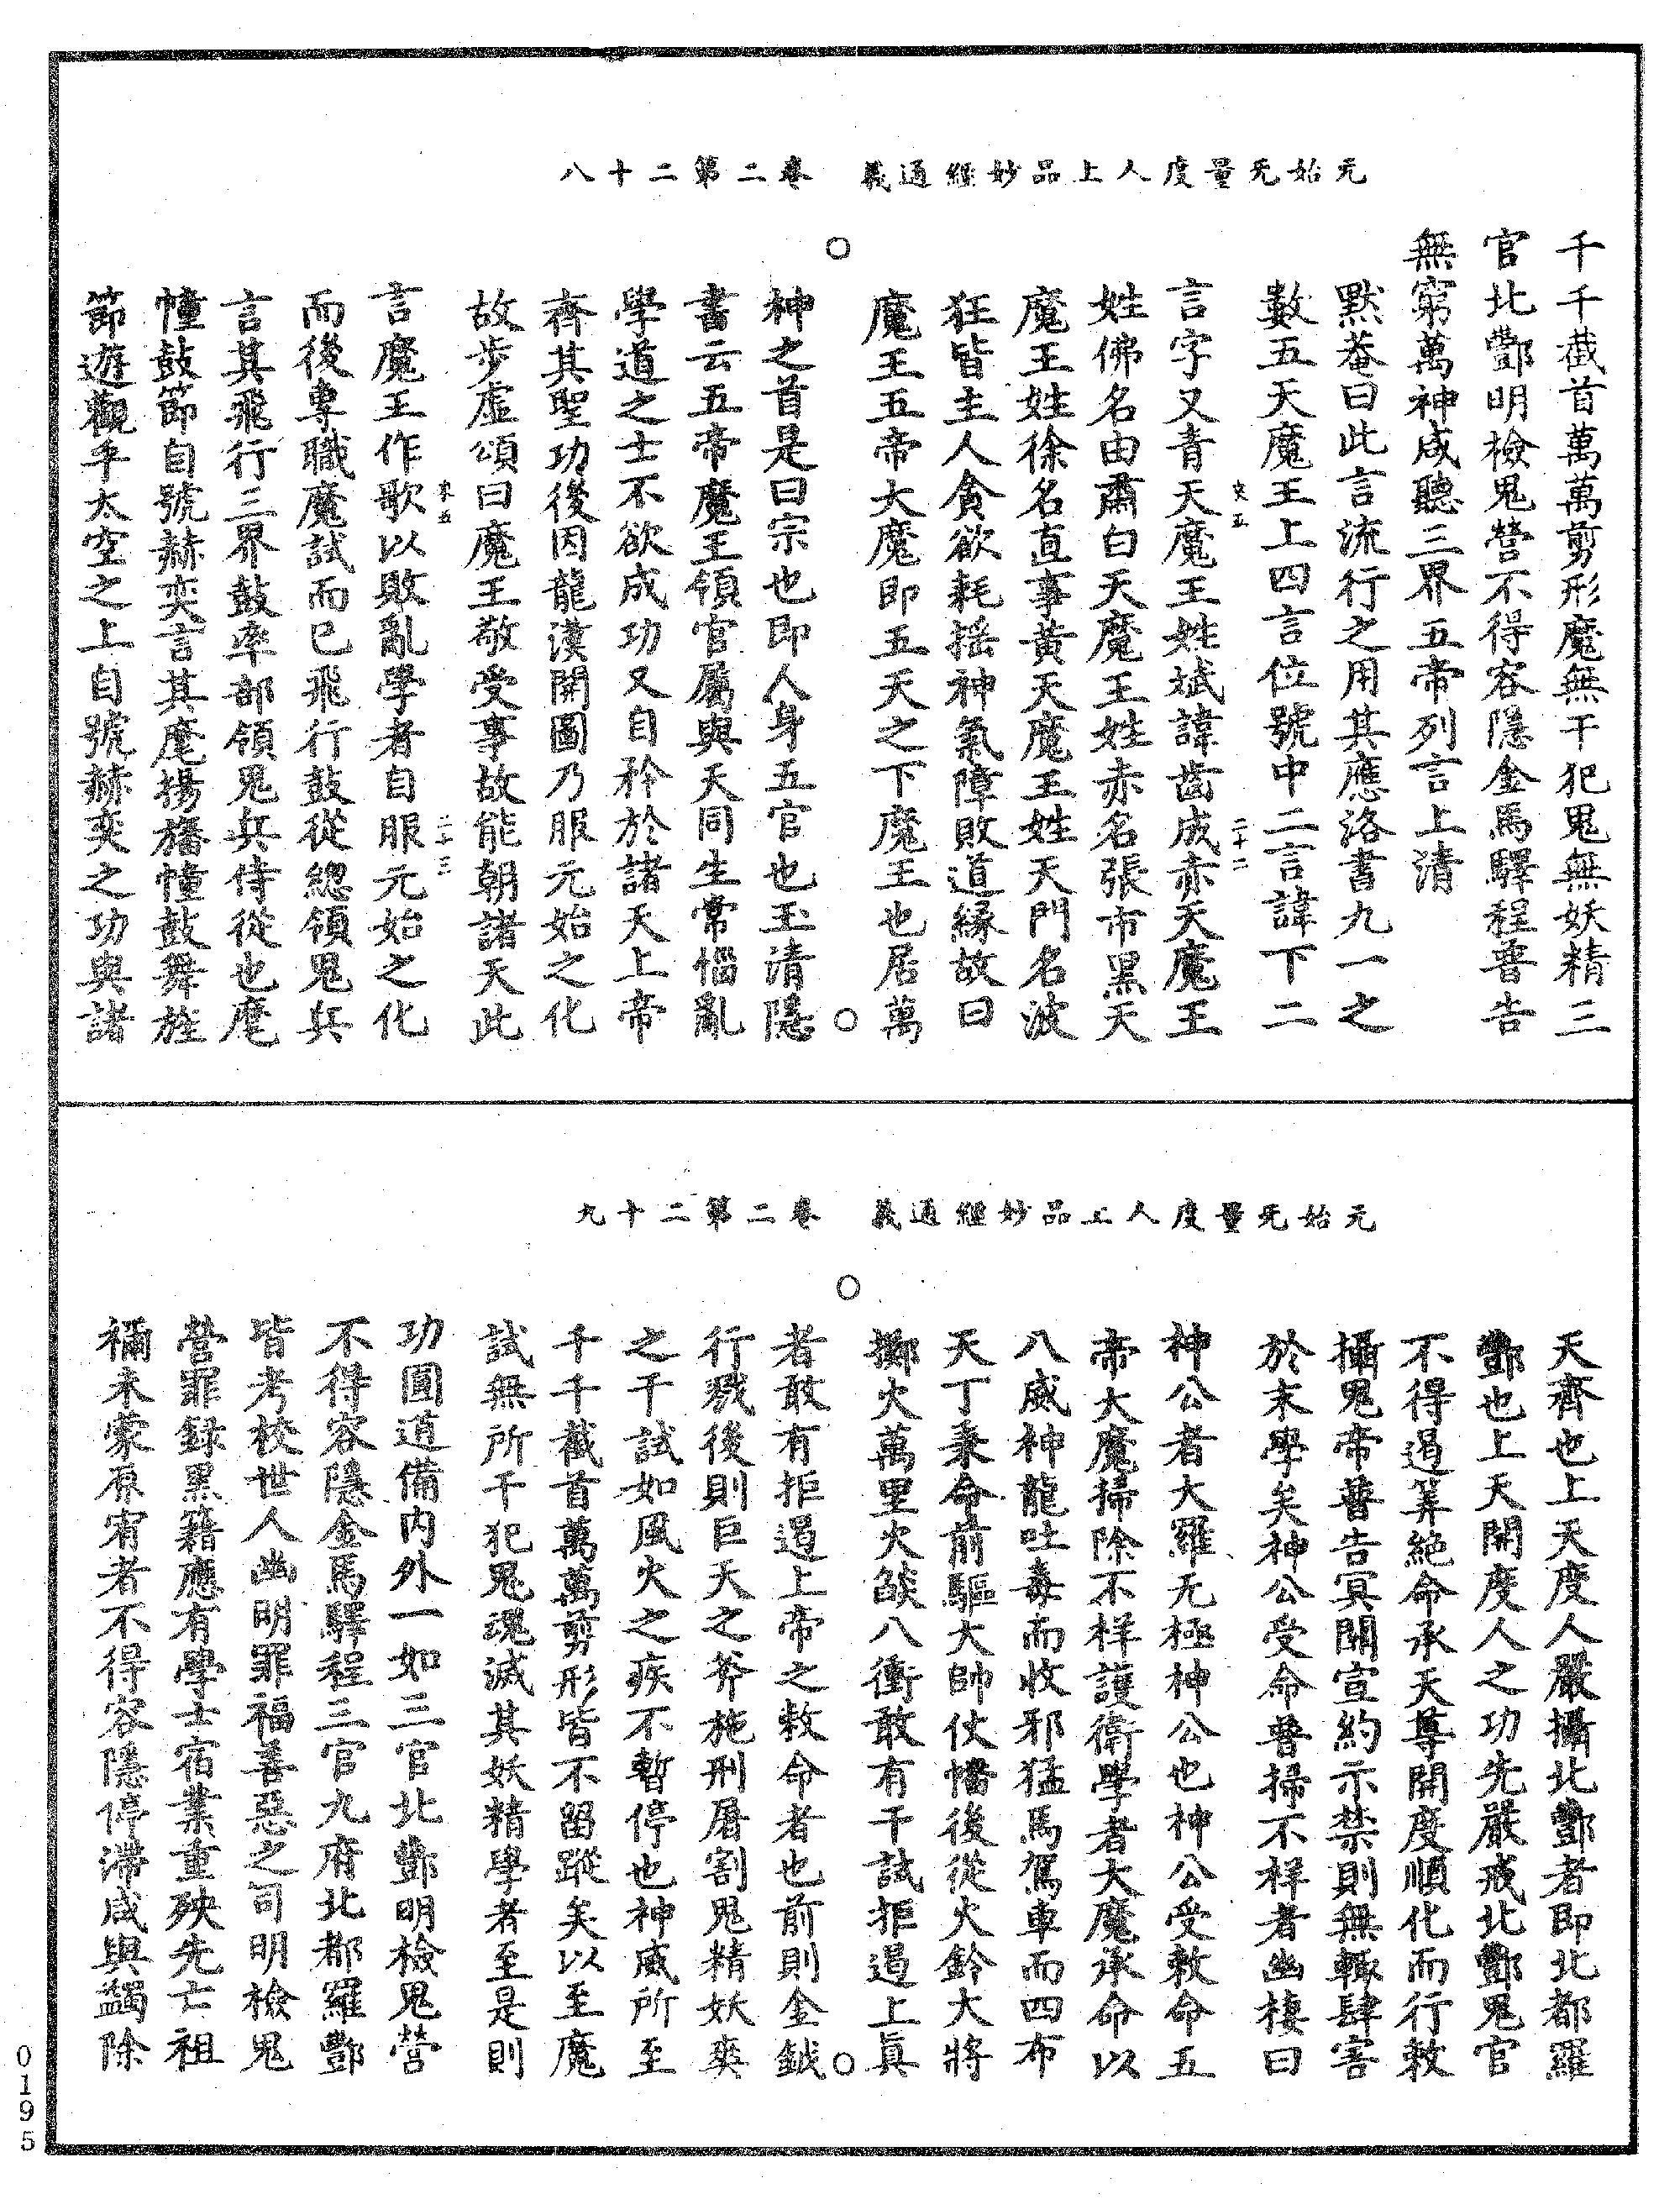 元始无量度人上品妙經通義　卷二第二十八
千千截首萬萬剪形魔無干犯鬼無妖精三
官北酆明檢鬼營不得容隱金馬驛程普告
無窮萬神咸聽三界五帝列言上清
默菴曰此言流行之用其應洛書九一之
數五天魔王上四言位號中二言諱下二
言字又青天魔王姓斌諱齒成赤天魔王
姓佛名由肅白天魔王姓赤名張市黑天
魔王姓徐名直事黃天魔王姓天門名波
狂皆主人貪欲耗搖神氣障敗道縁故曰
魔王五帝大魔即五天之下魔王也居萬
神之首是曰宗也即人身五官也玉清隱
書云五帝魔王領官屬與天同生常惱亂
學道之士不欲成功又自矜於諸天上帝
齊其聖功後因龍漢開圖乃服元始之化
故步虛頌曰魔王敬受事故能朝諸天此
言魔王作歌以敗亂學者自服元始之化
而後専職魔試而已飛行鼓從總領鬼兵
言其飛行三界鼓率部領鬼兵侍從也麾
幢鼓節自號赫奕言其麾揚旛幢鼓舞旌
節遊觀乎太空之上自號赫奕之功與諸
元始无量度人上品妙經通義　卷二第二十九
天齊也上天度人嚴攝北酆者即北都羅
酆也上天開度人之功先嚴戒北酆鬼官
不得遏筭絶命承天尊開度順化而行敕
攝鬼帝普告冥關宣約示禁則無輙肆害
於末學矣神公受命普掃不祥者幽棲曰
神公者大羅无極神公也神公受敕命五
帝大魔掃除不祥護衛學者大魔承命以
八威神龍吐毒而收邪猛馬駕車而四布
天丁秉命前驅大帥仗幡後從火鈴大將
擲火萬里火燄八衝敢有干試拒遏上真
者敢有拒遏上帝之敕命者也前則金鉞
行戮後則巨天之斧施刑屠割鬼精妖爽
之干試如風火之疾不暫停也神威所至
千千截首萬萬剪形皆不留蹤矣以至魔
試無所干犯鬼魂滅其妖精學者至是則
功圓道備内外一如三官北酆明檢鬼營
不得容隱金馬驛程三官九府北都羅酆
皆考校世人幽明罪福善惡之司明檢鬼
營罪録黑籍應有學士宿業重殃先亡祖
禰未蒙原宥者不得容隱停滯咸與蠲除
0195